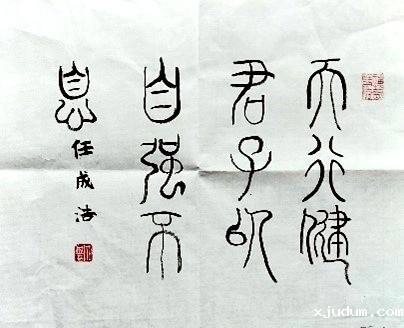 天行健
君子以
自强不
息
任成浩
xjudum.com